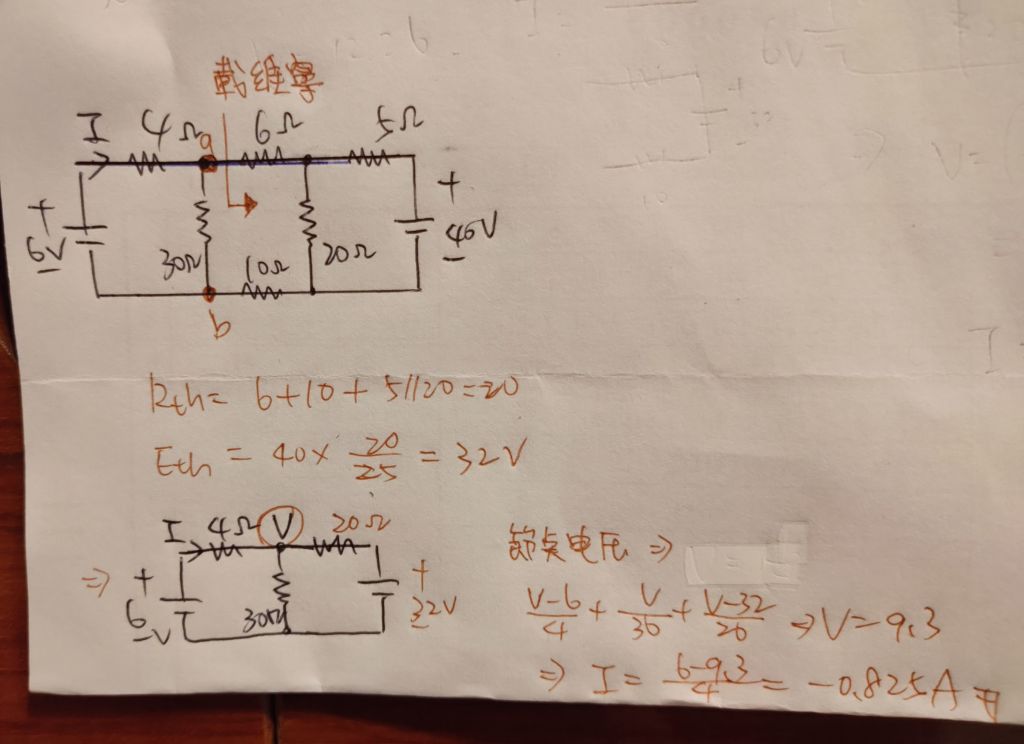 戴维宁
I 4Ω a 6Ω 5Ω
+ 6V 30Ω 10Ω 20Ω + 40V
b
Rth = 6+10+5//20=20
Eth = 40× 20/25 = 32V
I 4Ω V 20Ω
⇒ + 6V 30Ω + 32V
節点电压 ⇒
V-6/4 + V/30 + V-32/20 ⇒ V=9.3
⇒ I = 6-9.3/4 = -0.825A #